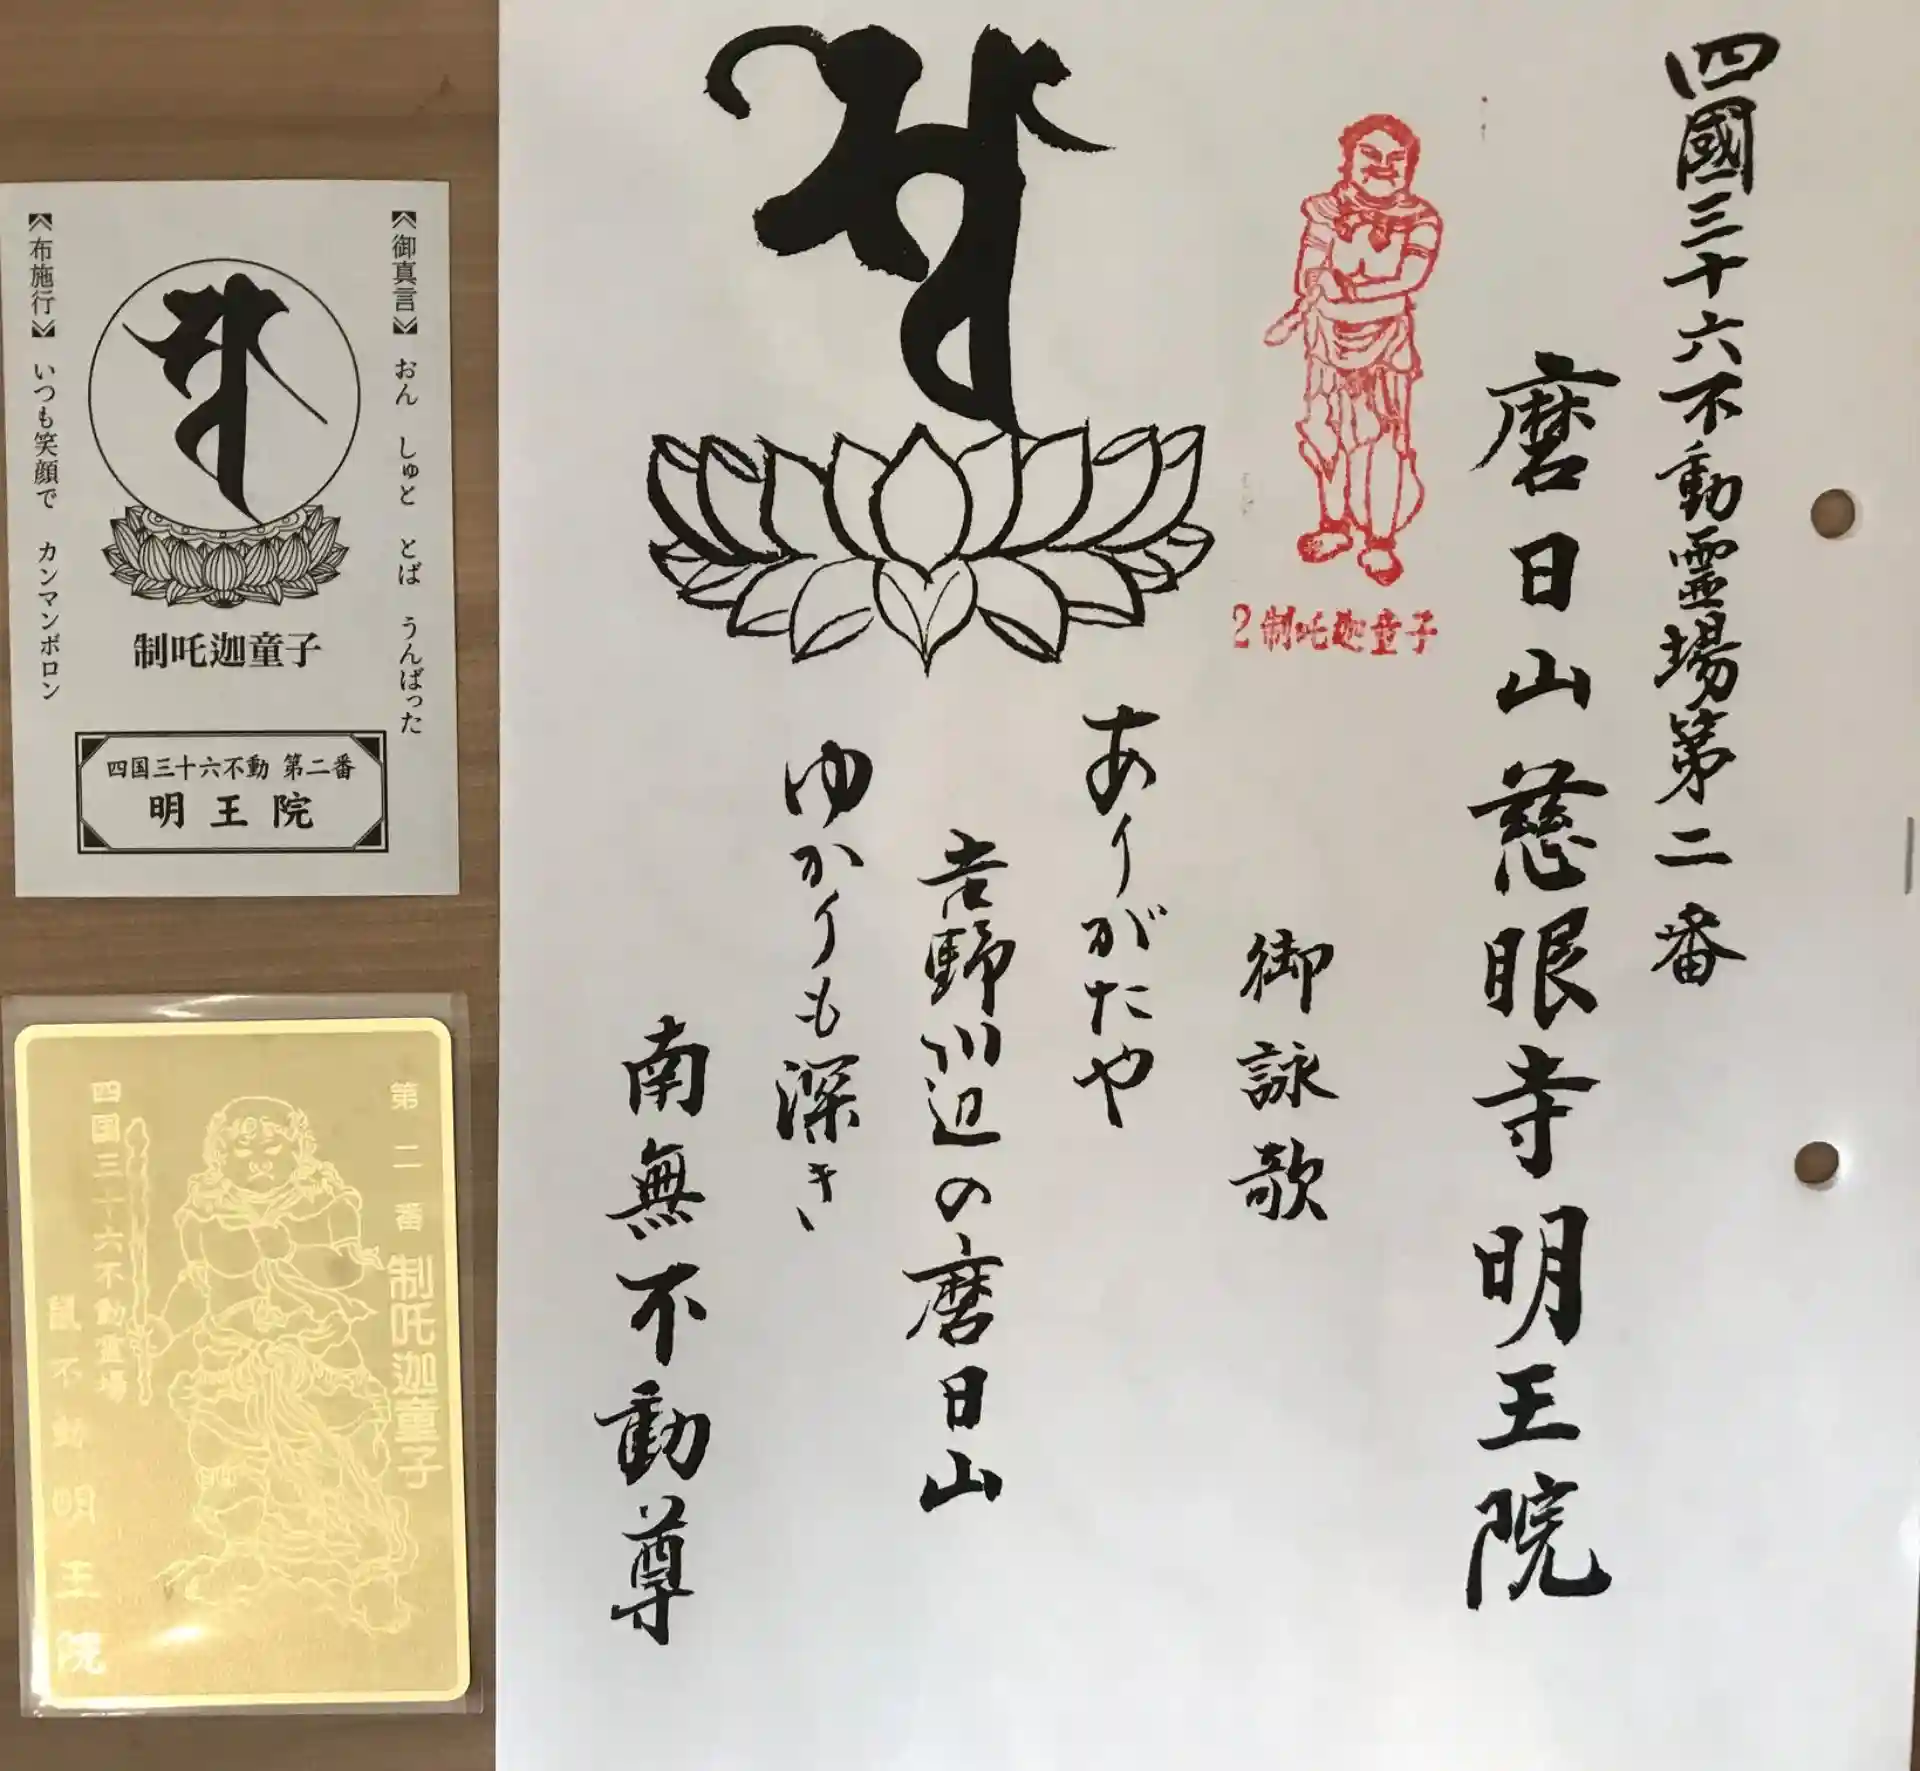 四國三十六不動霊場第二番
磨日山慈眼寺明王院
2制吒迦童子
御詠歌
ありがたや
吉野川辺の磨日山
ゆかりも深き
南無不動尊
《御真言》 おん しゅと とば うんばった
制吒迦童子
四国三十六不動 第二番
明王院
《布施行》 いつも笑顔で カンマンボロン
第二番
制吒迦童子
四国三十六不動霊場
鼠不動明王院